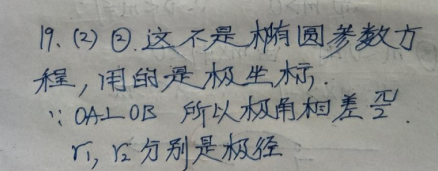 19. (2) ②. 这不是椭圆参数方
程，用的是极坐标.
∵ OA⊥OB 所以极角相差π/2.
r₁, r₂ 分别是极径